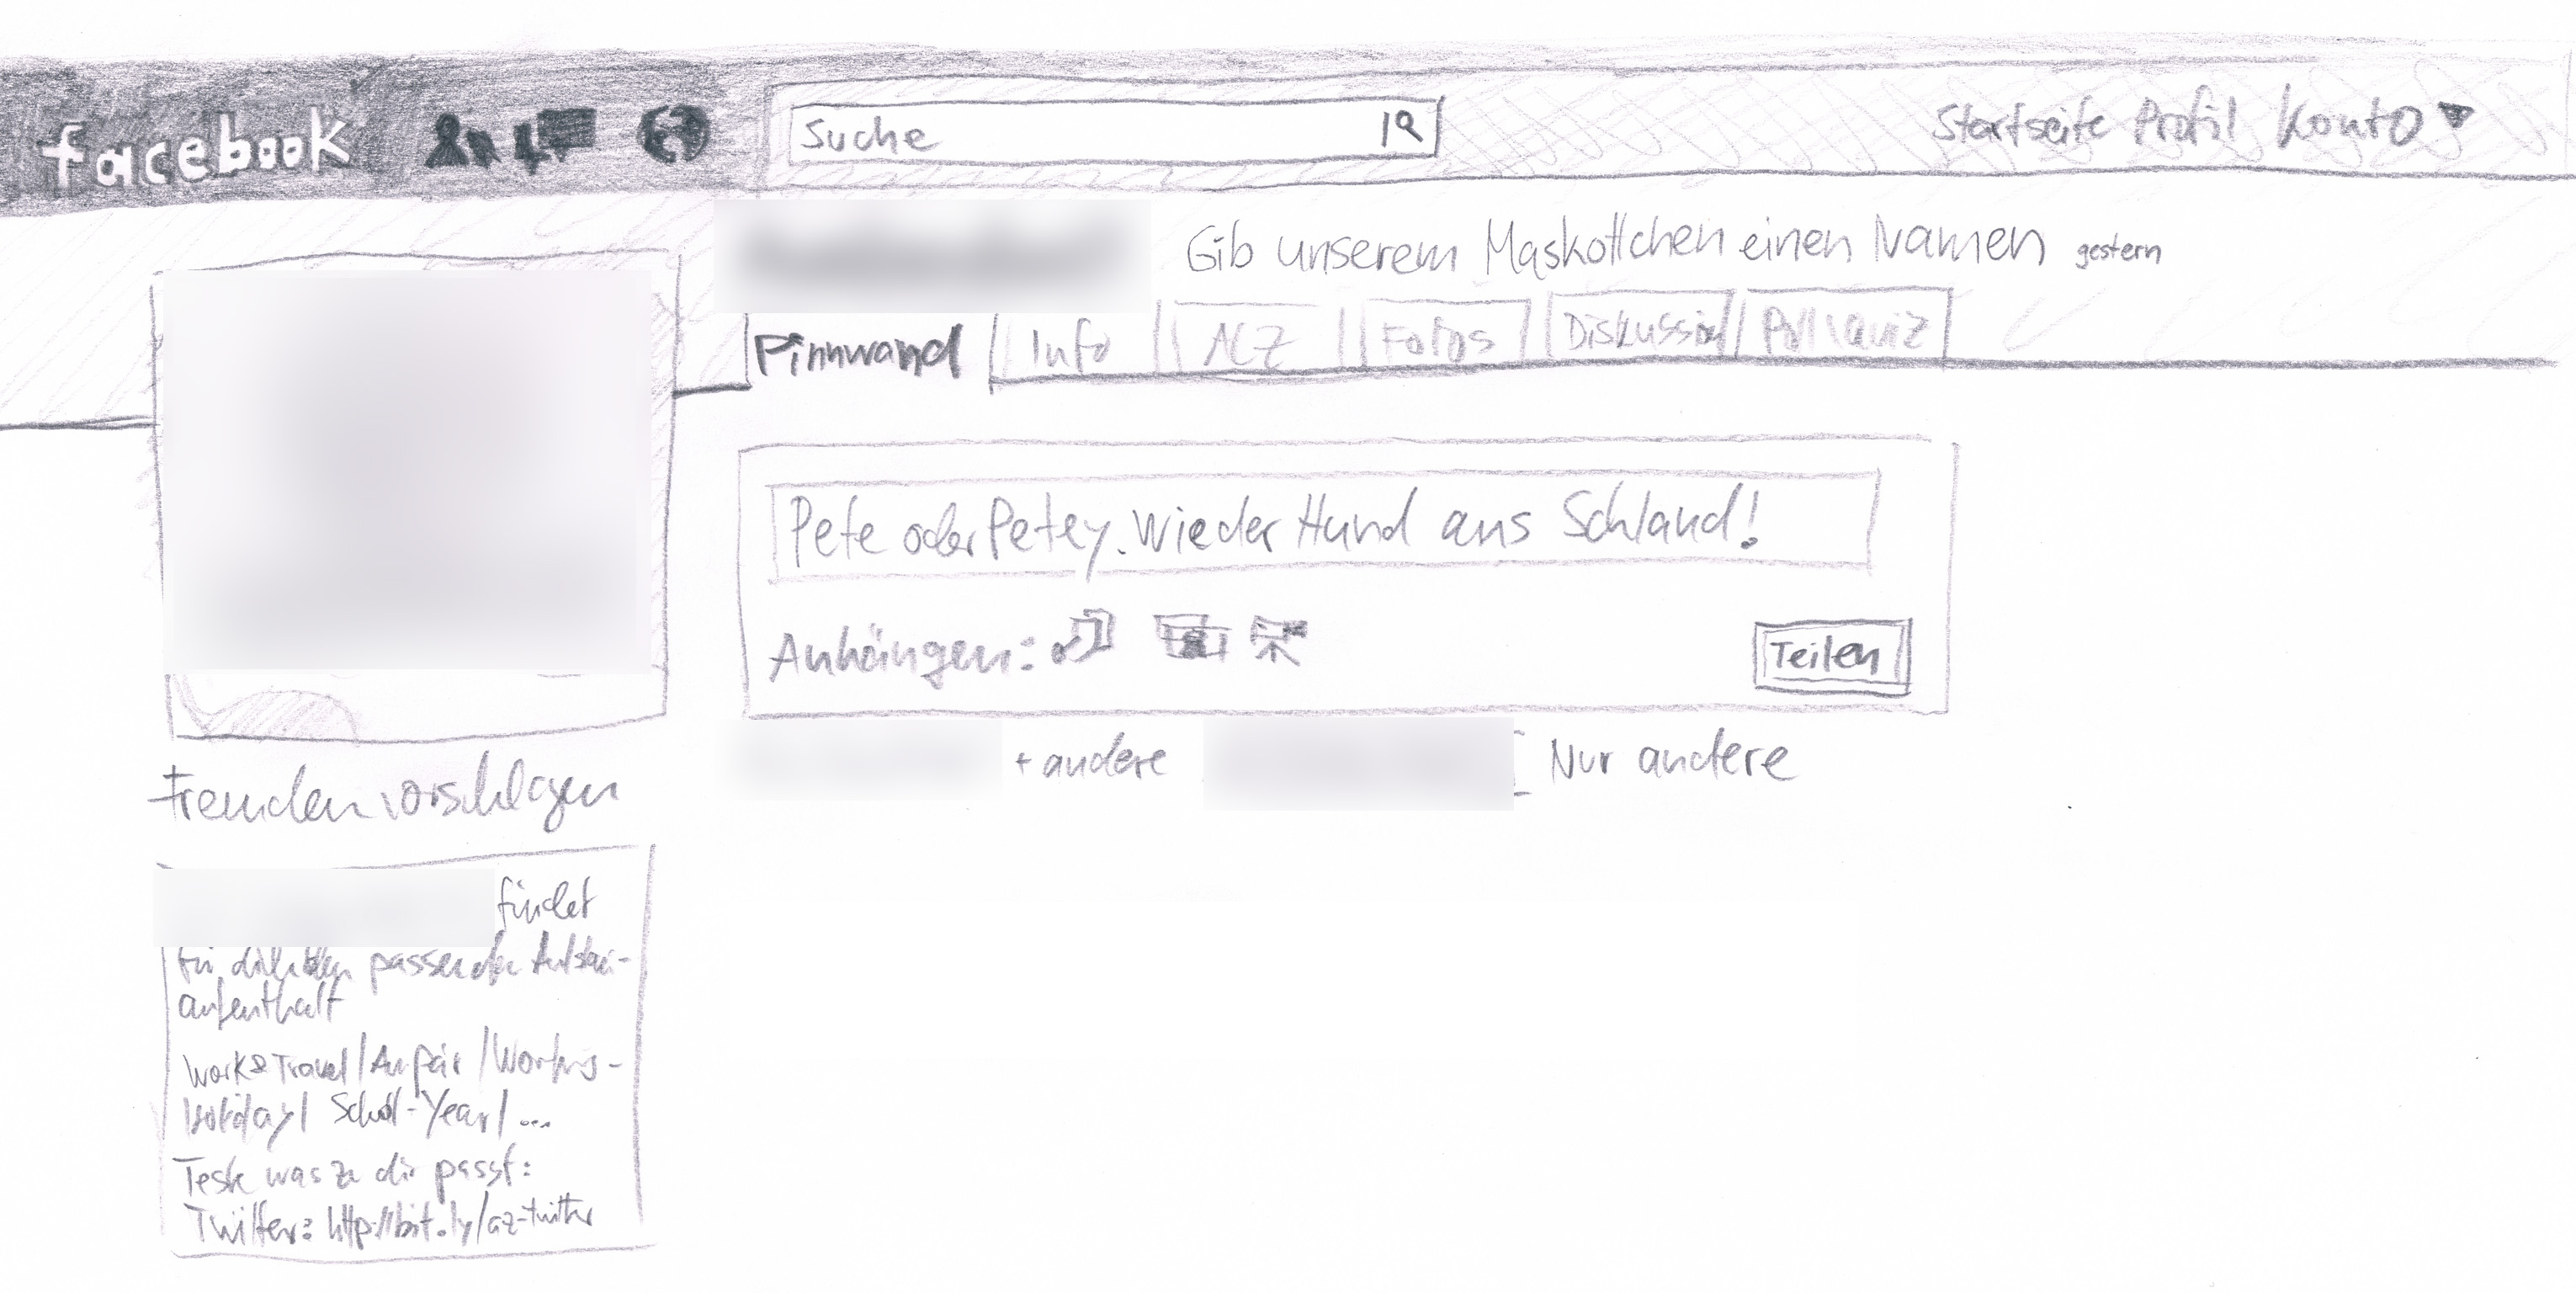 facebook
Suche
Startseite Profil Konto
Gib unserem Maskottchen einen Namen gestern
Pinnwand Info Fotos Diskussion
Pete oder Petey. Wie der Hund aus Schland!
Anhängen:
Teilen
+ andere Nur andere
vorschlagen
findet
passenden
aufenthalt
Work & Travel / Au pair / Working-
holiday / School-Year / ...
Teste was zu dir passt:
Twitter: http://bit.ly/az-twitter